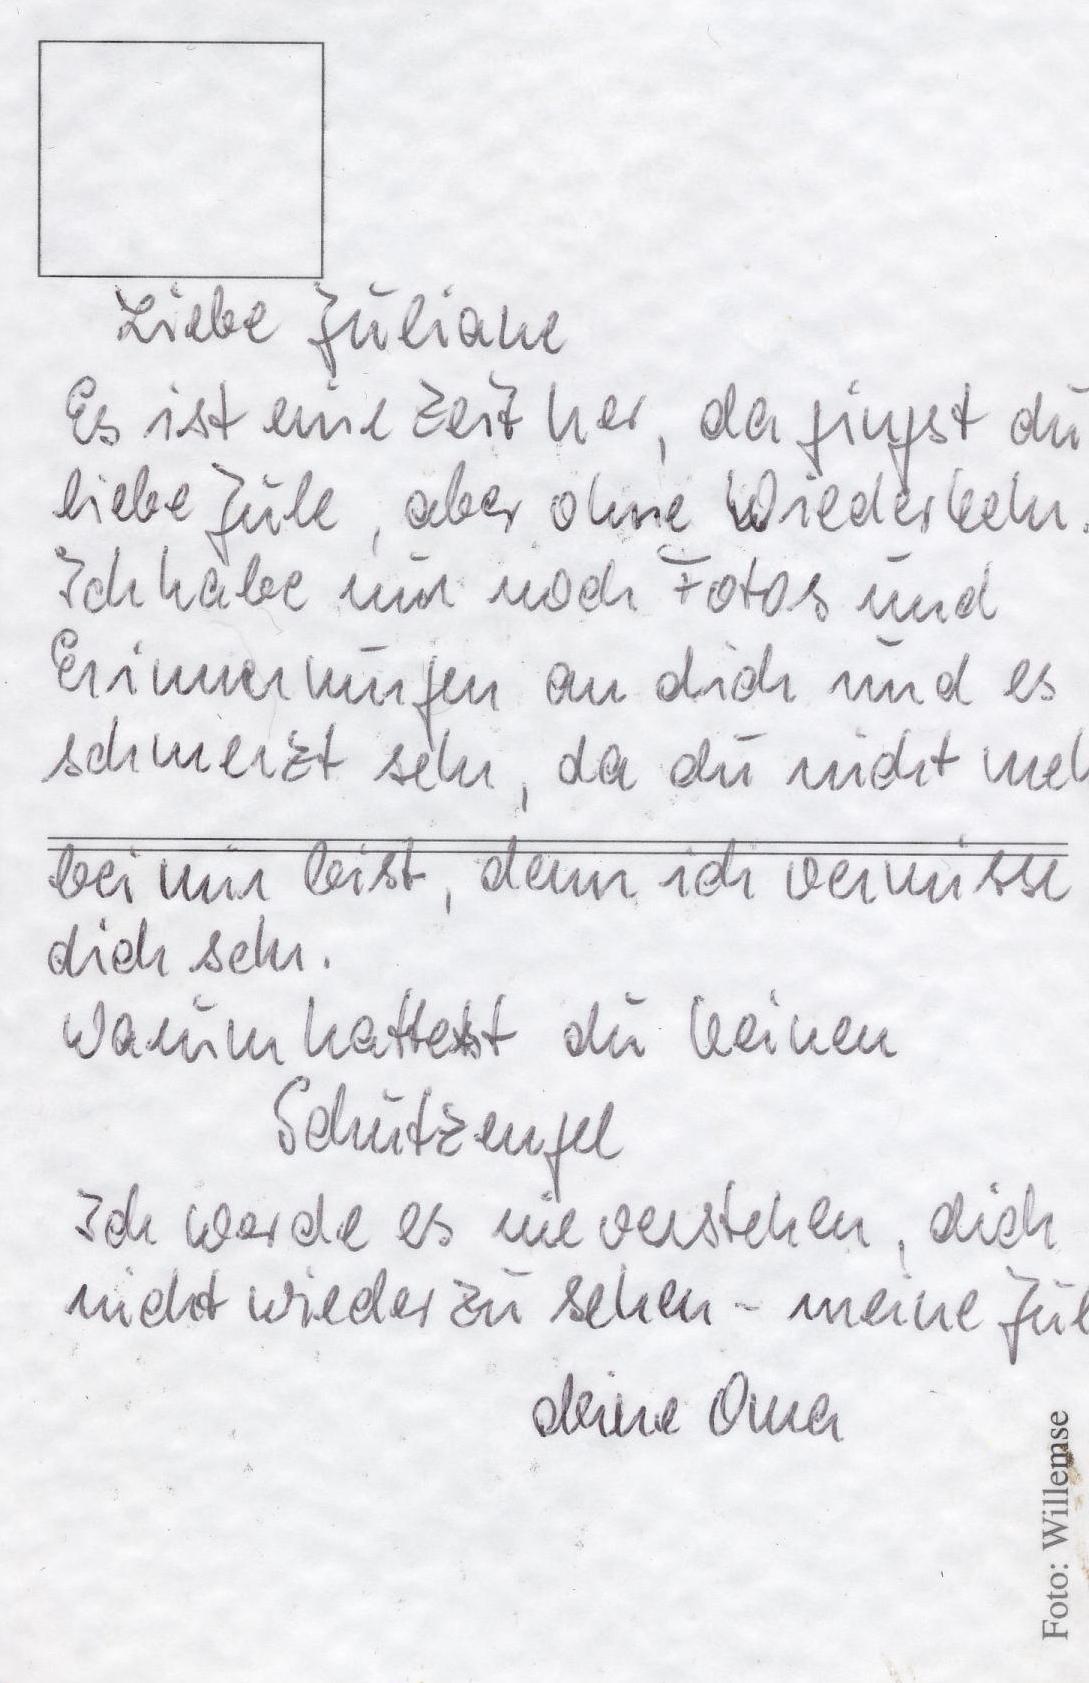 Liebe Juliane
Es ist eine Zeit her, da gingst du
liebe Jule, aber ohne Wiederkehr.
Ich habe nur noch Fotos und
Erinnerungen an dich und es
schmerzt sehr, da du nicht meh
bei mir bist, denn ich vermisse
dich sehr.
Warum hattest du keinen
Schutzengel
Ich werde es nie verstehen, dich
nicht wieder zu sehen - meine Jul
deine Oma
Foto: Willemse